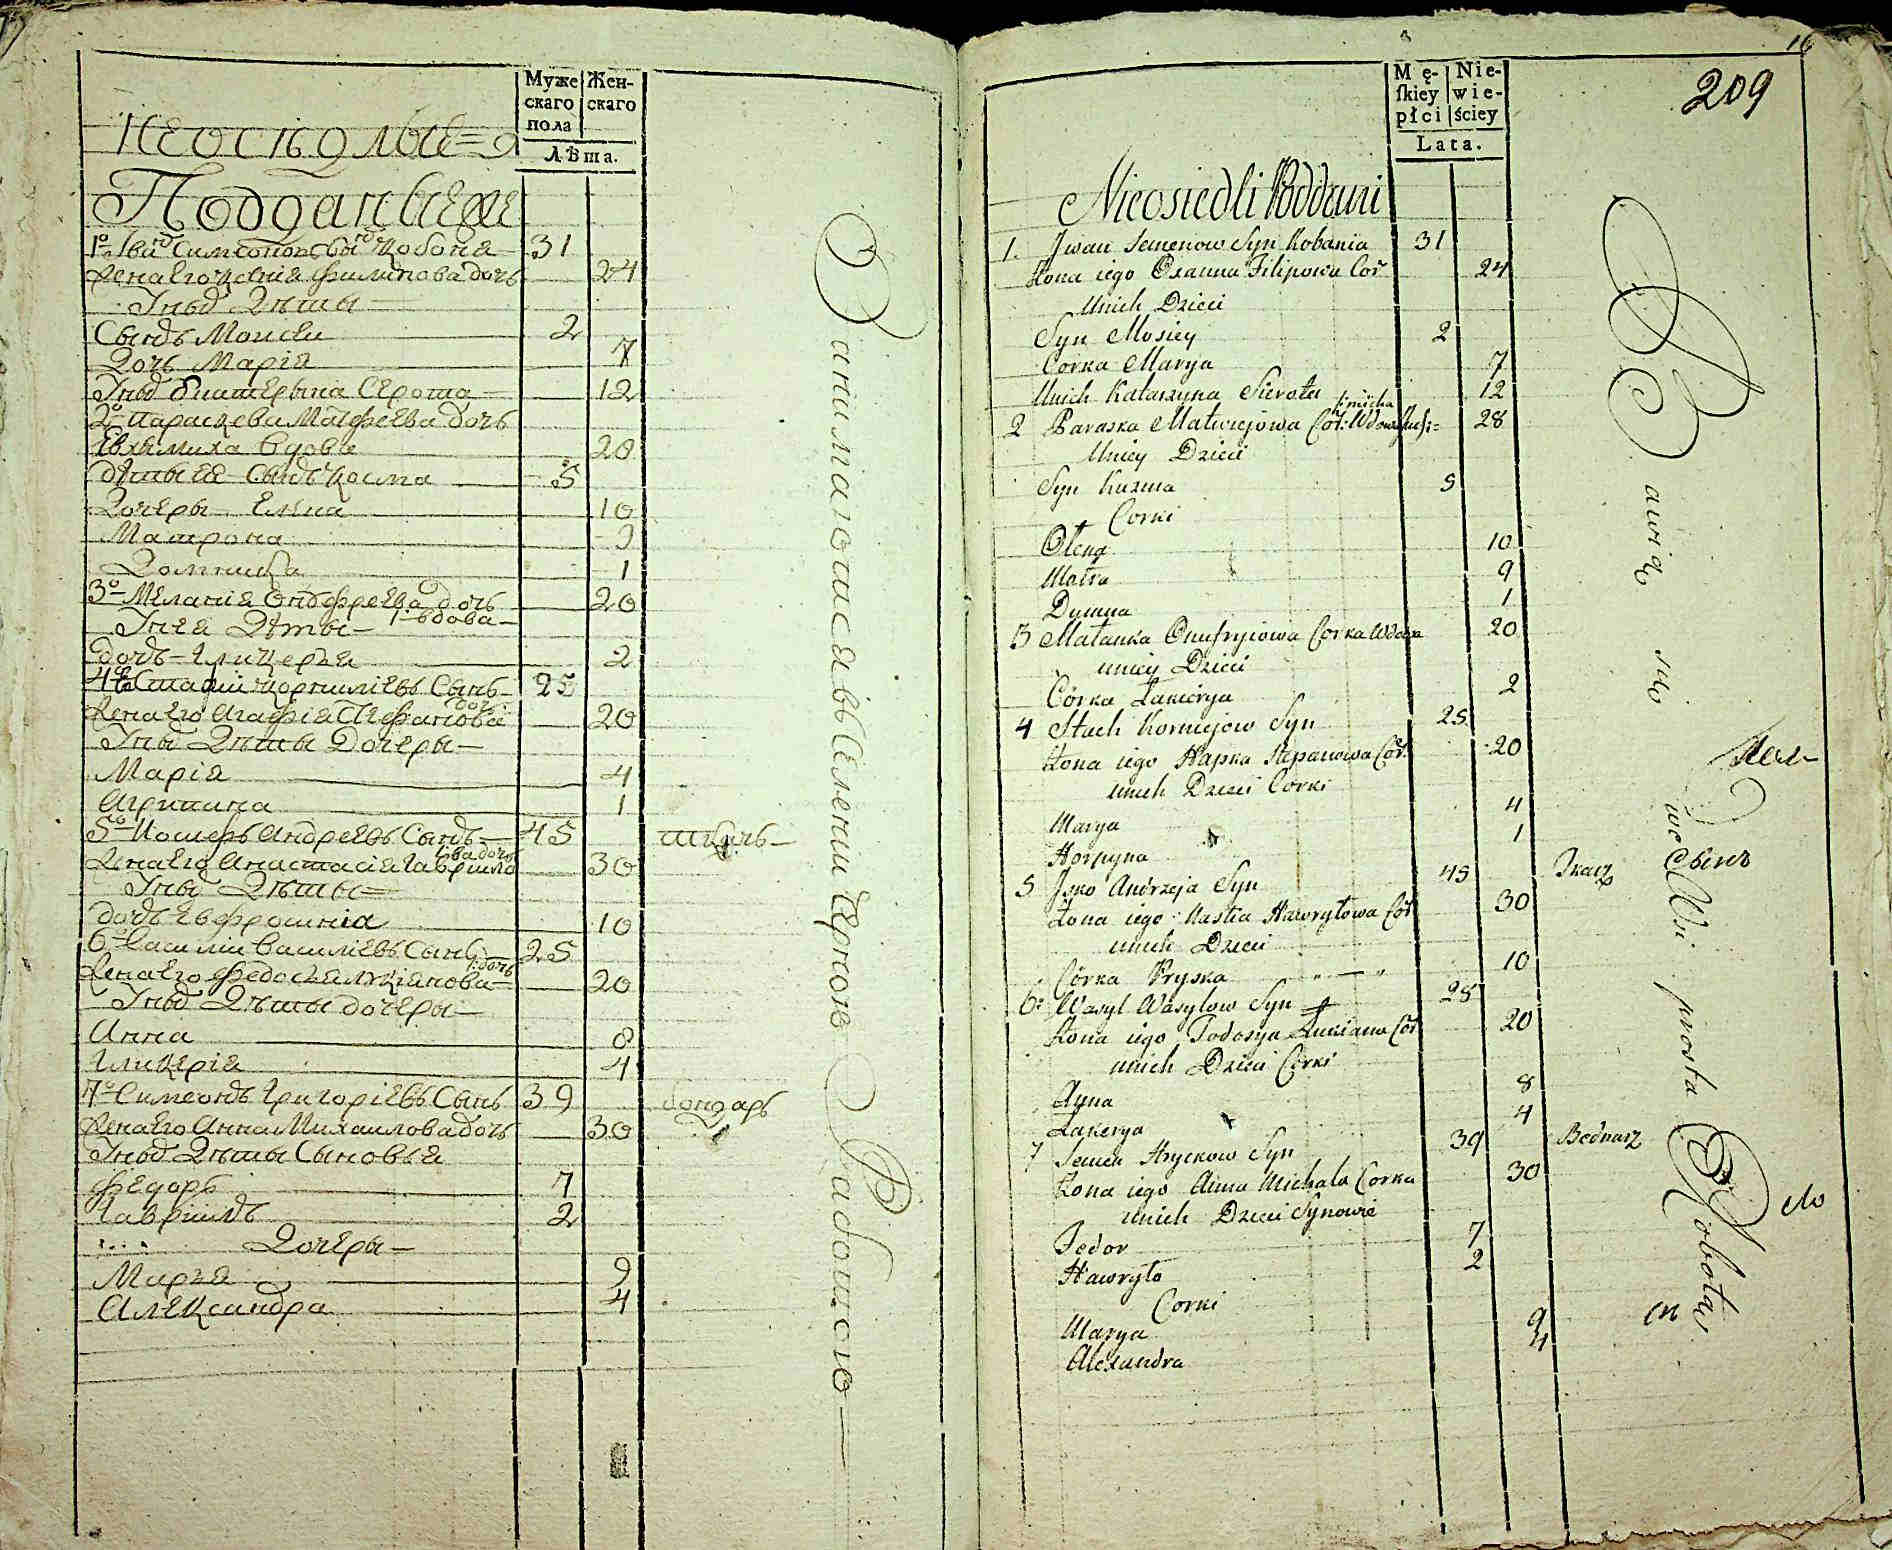 Муже
скаго
пола
Жен-
скаго
Лѣта.
неосѣдлые
Подданные
1º Іванъ Симеоновъ сынъ Кобаня 31
Жена его Ксенія Филипова дочь 24
У ных Дѣты
Сынъ Моисей 2
Дочь Марія 7
У ных Екатерына Серота 12
2º Параскева Матфеева дочь
Евхимиха вдова 20
Дѣты ея Сынъ Косма 5
Дочеры Елена 10
Матрона 9
Домникія 1
3º Меланія Онофреева дочь вдова 20
У нея Дѣты
дочь Гликерія 2
4º Евстафій Корнилиевъ Сынъ 25
Жена его Агафія Стефанова дочь 20
У ных Дѣты Дочеры
Марія 4
Агрипина 1
5º Иосифъ Андреевъ Сынъ 45 ткачь
Жена его Анастасія Гаврилова дочь 30
У ных Дѣты
дочь Евфросинія 10
6º Василий Василиевъ Сынъ 25
Жена его Федосья Лукіянова дочь 20
У ных Дѣты дочеры
Анна 8
Гликерія 4
7º Симеонъ Григоріевъ Сынъ 39 бондарь
Жена его Анна Михаилова дочь 30
У ных Дѣты Сыновья
Федоръ 7
Гаврііилъ 2
Дочеры
Марья 9
Александра 4
Занимаются въ селении Черною Работою
16
209
Mę-
ſkiey
płci
Nie-
wie-
ściey
Lata.
Nieosiedli Poddani
1. Jwan Semenow Syn Kobania 31
Żona iego Oxanna Filipowa Cor 24
Unich Dzieci
Syn Mosiey 2
Corka Marya 7
Unich Katarzyna Sierota 12
2 Paraska Matwiejowa Cór: Wdowa Juchimicha 28
Uniey Dzieci
Syn Kuzma 5
Corki
Olena 10
Matra 9
Dumna 1
3 Małanka Onufryiowa Corka Wdowa 20
uniey Dzieci
Córka Łukerya 2
4 Stach Korniejow Syn 25
Żona iego Hapka Stepanowa Cór. 20
unich Dzieci Corki
Marya 4
Horpyna 1
5 Jśko Andrzeja Syn 45 Tkacz
Żona iego Nastia Hawryłowa Cór 30
unich Dzieci
Córka Pryska 10
6: Wasyl Wasylow Syn 25
Żona iego Todosya Łukiana Cór 20
unich Dzieci Corki
Anna 8
Łukerya 4
7 Semen Hryckow Syn 39 Bednarz
Żona iego Anna Michała Corka 30
unich Dzieci Synowie
Fedor 7
Hawryło 2
Corki
Marya 9
Alexandra 4
Bawią się we Wsi prosta Robotą
сынъ